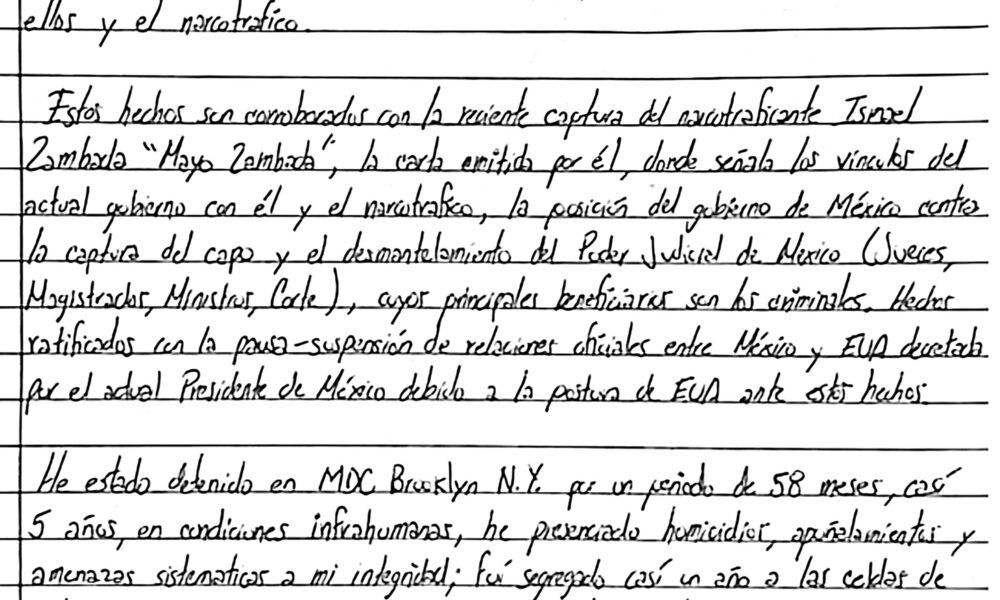 ellos y el narcotrafico.
Estos hechos son corroborados con la reciente captura del narcotraficante Ismael
Zambada "Mayo Zambada", la carta emitida por él, donde señala los vinculos del
actual gobierno con él y el narcotrafico, la posición del gobierno de México contra
la captura del capo y el desmantelamiento del Poder Judicial de México (Jueces,
Magistrados, Ministros, Corte), cuyos principales beneficiarios son los criminales. Hechos
ratificados con la pausa-suspensión de relaciones oficiales entre México y EUA decretada
por el actual Presidente de México debido a la postura de EUA ante estos hechos.
He estado detenido en MDC Brooklyn N.Y. por un periodo de 58 meses, casí
5 años, en condiciones infrahumanas, he presenciado homicidios, apuñalamientos y
amenazas sistematicas a mi integridad; fuí segregado casí un año a las celdas de